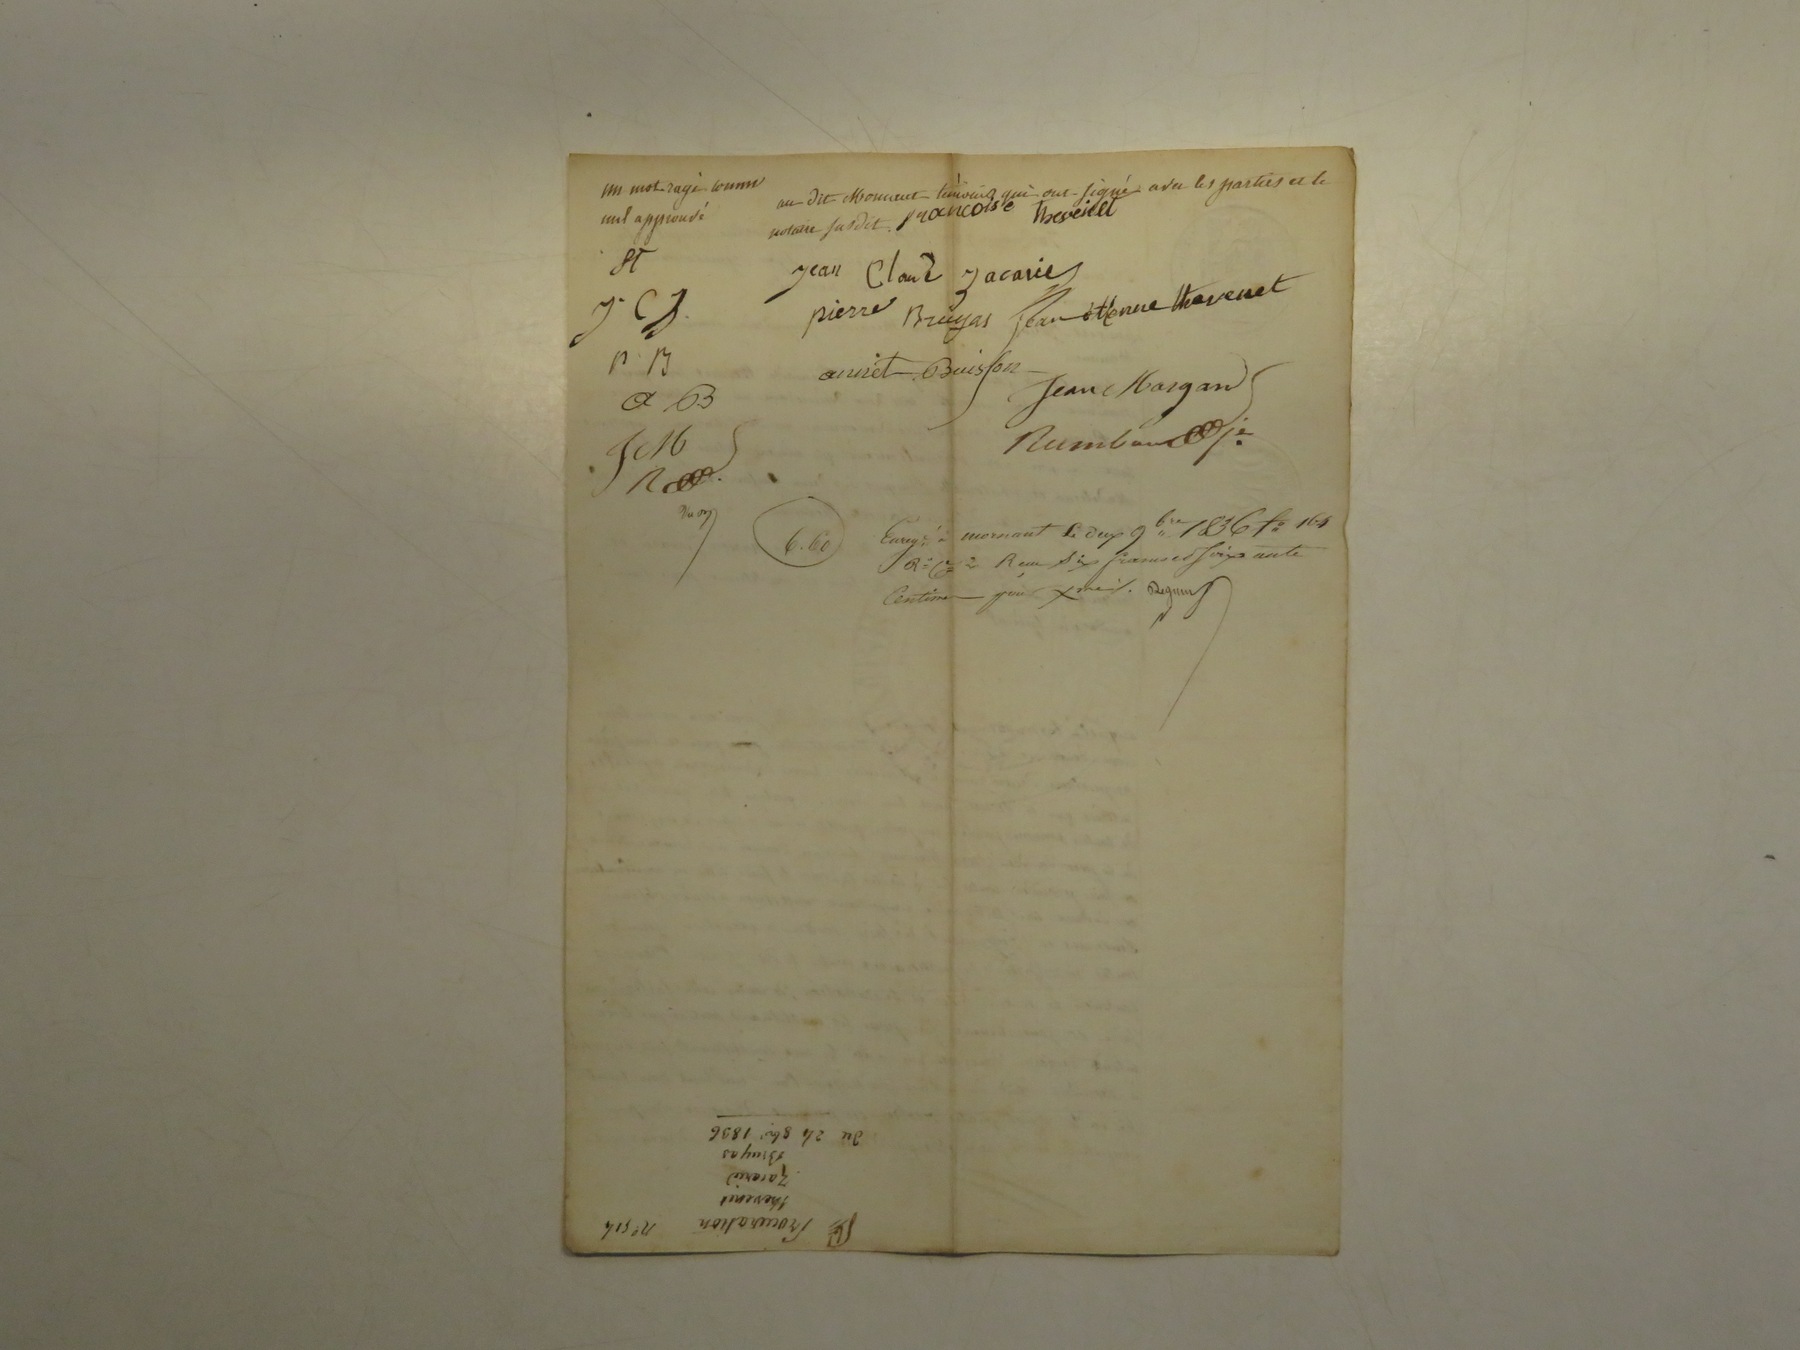 un mot rayé comme
nul approuvé
ft
J. C Z.
P B
a B
J M
R
au dit Mornant témoins qui ont signé avec les parties et le
notaire susdit. françoise thevenet
jean Claud zacarie
pierre Bruyas Jean etienne thevenet
anriet Buisson
Jean Margand
Rumbaud
6.60
Enregé à mornant le deux 9bre 1836 fo 164
Ro Co 2 Reçu Six francs et Soixante
Centimes
No 514 Procuration
thevenet
Zacarie
Bruyas
Du 24 8bre 1836